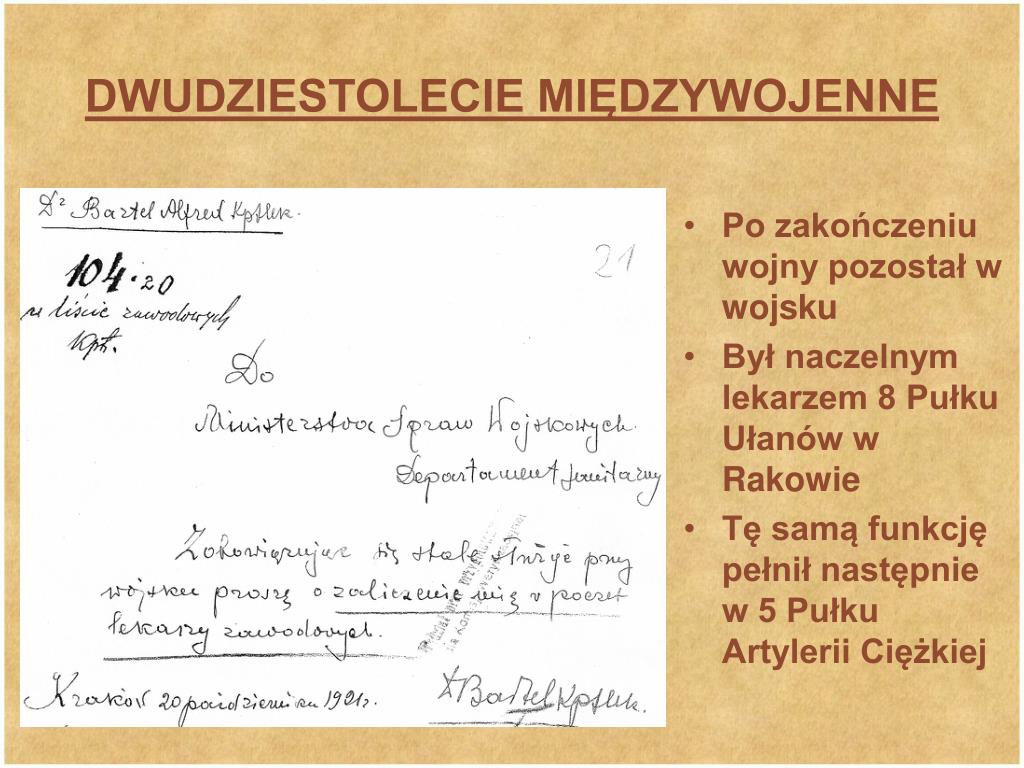 DWUDZIESTOLECIE MIĘDZYWOJENNE
Dr Bartel Alfred Kptlek.
21
104·20
w liście zawodowych
Kpt.
Do
Ministerstwa Spraw Wojskowych
Departament Sanitarny
Zobowiązując się stale służyć przy
wojsku proszę o zaliczenie mię w poczet
lekarzy zawodowych.
Kraków 20 października 1921r.
Dr Bartel Kptlek.
• Po zakończeniu
wojny pozostał w
wojsku
• Był naczelnym
lekarzem 8 Pułku
Ułanów w
Rakowie
• Tę samą funkcję
pełnił następnie
w 5 Pułku
Artylerii Ciężkiej